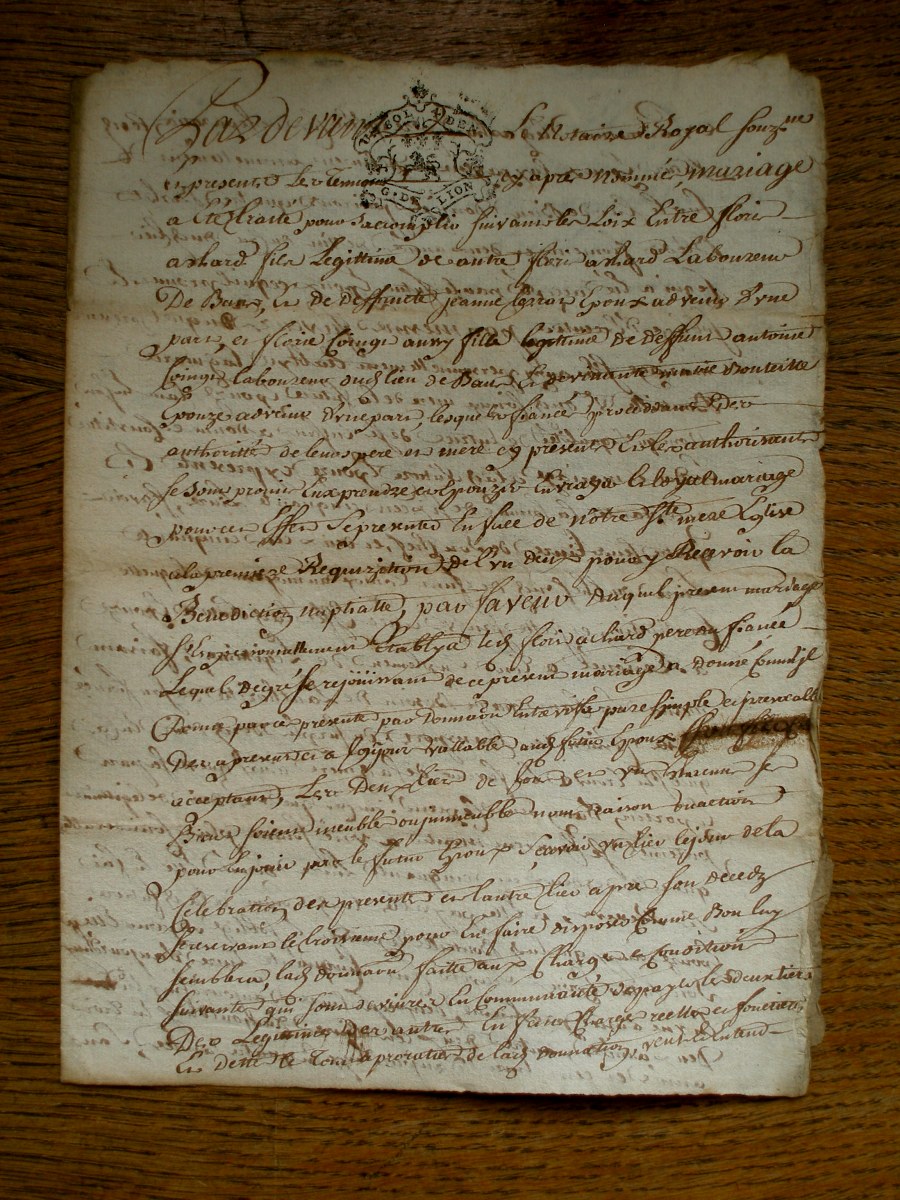 Pardevant Le Notaire Royal souz.né
en presence des temoins cy apres nommé, mariage
G. DE LION
a été traité pour saccomplir suivant les Loix Entre floris
achard fils Legittime de autre floris achard Laboureur
De et de deffuncte jeanne Epoux advenir d'vne
part, et florie aussy fille legittime de deffunt antoine
laboureur dud. lieu de et de vivante marie
Epouze advenir d'vne part, lesquels fiancé procedant de
authoritté de leurs pere et mere cy presents Et les authorisant
se sont promis Eux prendre et Epouzer En vray & loyal mariage
pour cet Effet se presenter En face de notre Ste mere Eglise
a la premiere Requizition de l'vn deux pour y Recevoir la
Benediction nuptialle, par faveur duquel present mariage
s'est personnellement Etably led. floris achard pere au fiancé
Lequel de gré se rejouissant de ce present mariage a donné Comme il
Donne par ce presente par donnaôn Entre vifs pure simple et irrevocable
Des a present et a toujour vallable aud. futur Epoux
acceptant, Les Deux tiers de tous ses
Biens soient meuble ou immeuble nom raison ou action
pour En jouir par le futur Epoux Scavoir vn tier le jour de la
Celebration des presente et l'autre tier apres son decedz
se reservant le troisieme pour En faire disposer Comme Bon luy
semblera, lad. donnaôn faitte aux Charge et Condition
suivante qui sont de vivre En Communauté de payer les deux tier
Des Legitimes des autres Enfans Charge reelle et fonciere
Et dette le tout a prorata de lad. donnation, veut & Entend